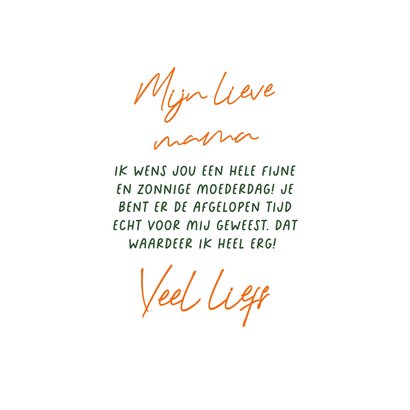 Mijn lieve
mama
IK WENS JOU EEN HELE FIJNE
EN ZONNIGE MOEDERDAG! JE
BENT ER DE AFGELOPEN TIJD
ECHT VOOR MIJ GEWEEST. DAT
WAARDEER IK HEEL ERG!
Veel liefs